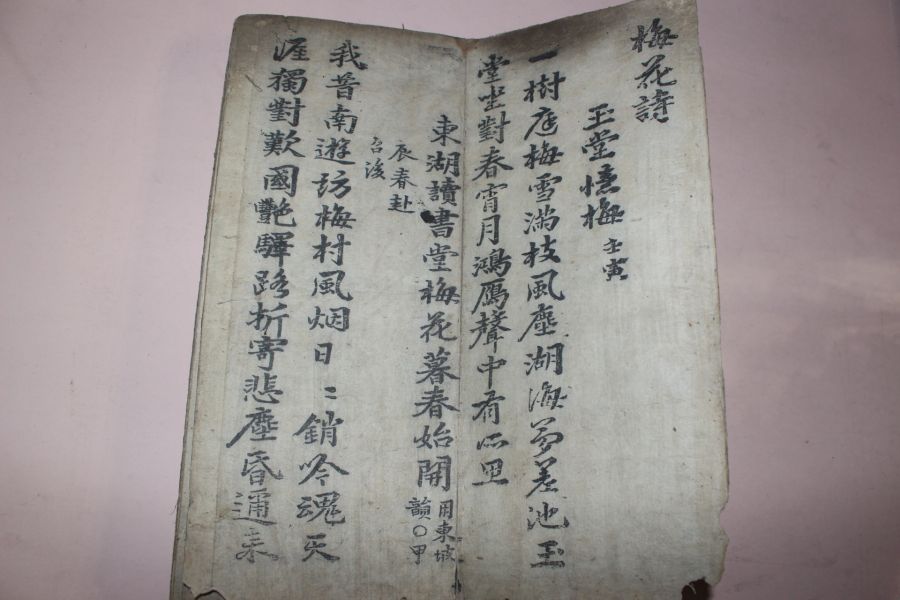 梅花詩
玉堂憶梅 壬寅
一樹庭梅雪滿枝風塵湖海夢差池玉
堂坐對春宵月鴻鴈聲中有所思
東湖讀書堂梅花暮春始開 用東坡
韻○甲
辰春赴
召後
我昔南遊訪梅村風烟日〻銷吟魂天
涯獨對歎國艶驛路折寄悲塵昏邇来